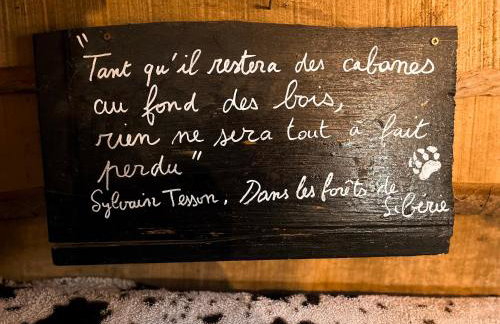 "Tant qu'il restera des cabanes
au fond des bois,
rien ne sera tout à fait
perdu"
Sylvain Tesson, Dans les forêts de
Sibérie